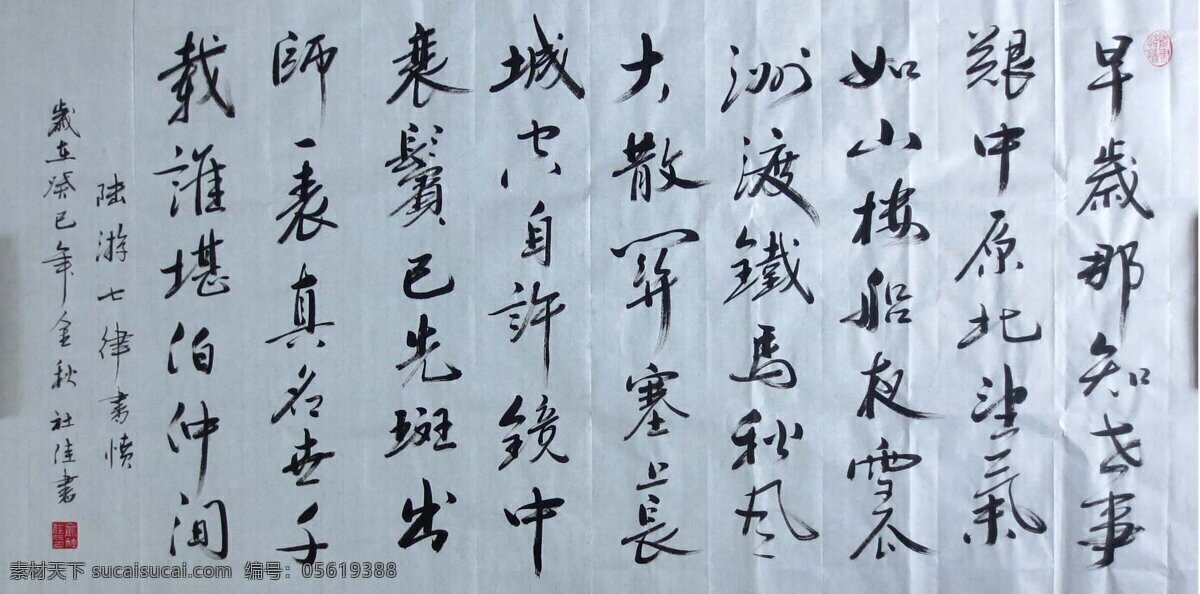 早歲那知世事
艱中原北望氣
如山樓船夜雪瓜
洲渡鐵馬秋風
大散關塞上長
城空自許鏡中
衰鬢已先斑出
師一表真名世千
載誰堪伯仲間
陸游七律書憤
歲在癸巳年金秋 佳書
素材天下 sucaisucai.com 编号：05619388